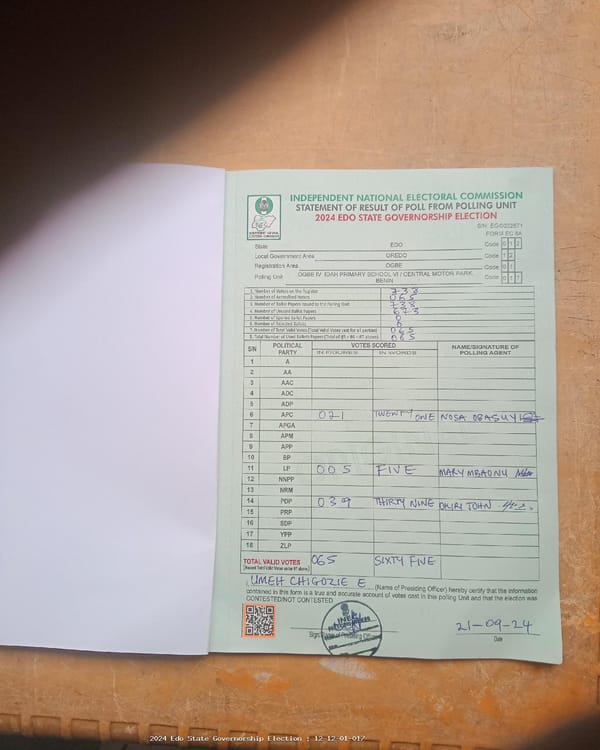 INDEPENDENT NATIONAL ELECTORAL COMMISSION
STATEMENT OF RESULT OF POLL FROM POLLING UNIT
2024 EDO STATE GOVERNORSHIP ELECTION
FORM EC 8A
State EDO Code 0 1 2
Local Government Area OREDO Code 1 2
Registration Area OGBE Code 0 1
Polling Unit OGBE IV, IDAH PRIMARY SCHOOL VI / CENTRAL MOTOR PARK, BENIN Code 0 1 7
1. Number of Voters on the Register 738
2. Number of Accredited Voters 065
3. Number of Ballot Papers Issued to the Polling Unit 738
4. Number of Unused Ballot Papers 673
5. Number of Spoiled Ballot Papers 0
6. Number of Rejected Ballots 0
7. Number of Total Valid Votes (Total Valid Votes cast for all parties) 065
8. Total Number of Used Ballot Papers (Total of #5 + #6 + #7 above) 065
S/N POLITICAL PARTY VOTES SCORED NAME/SIGNATURE OF POLLING AGENT
IN FIGURES IN WORDS
1 A
2 AA
3 AAC
4 ADC
5 ADP
6 APC 021 TWENTY ONE NOSA OBASUYI
7 APGA
8 APM
9 APP
10 BP
11 LP 005 FIVE MARY MBAONU
12 NNPP
13 NRM
14 PDP 039 THIRTY NINE OKIRI JOHN
15 PRP
16 SDP
17 YPP
18 ZLP
TOTAL VALID VOTES 065 SIXTY FIVE
I, UMEH CHIGOZIE E (Name of Presiding Officer) hereby certify that the information
contained in this form is a true and accurate account of votes cast in this polling Unit and that the election was
CONTESTED/NOT CONTESTED
21-09-24
Date
2024 Edo State Governorship Election : 12-12-01-017